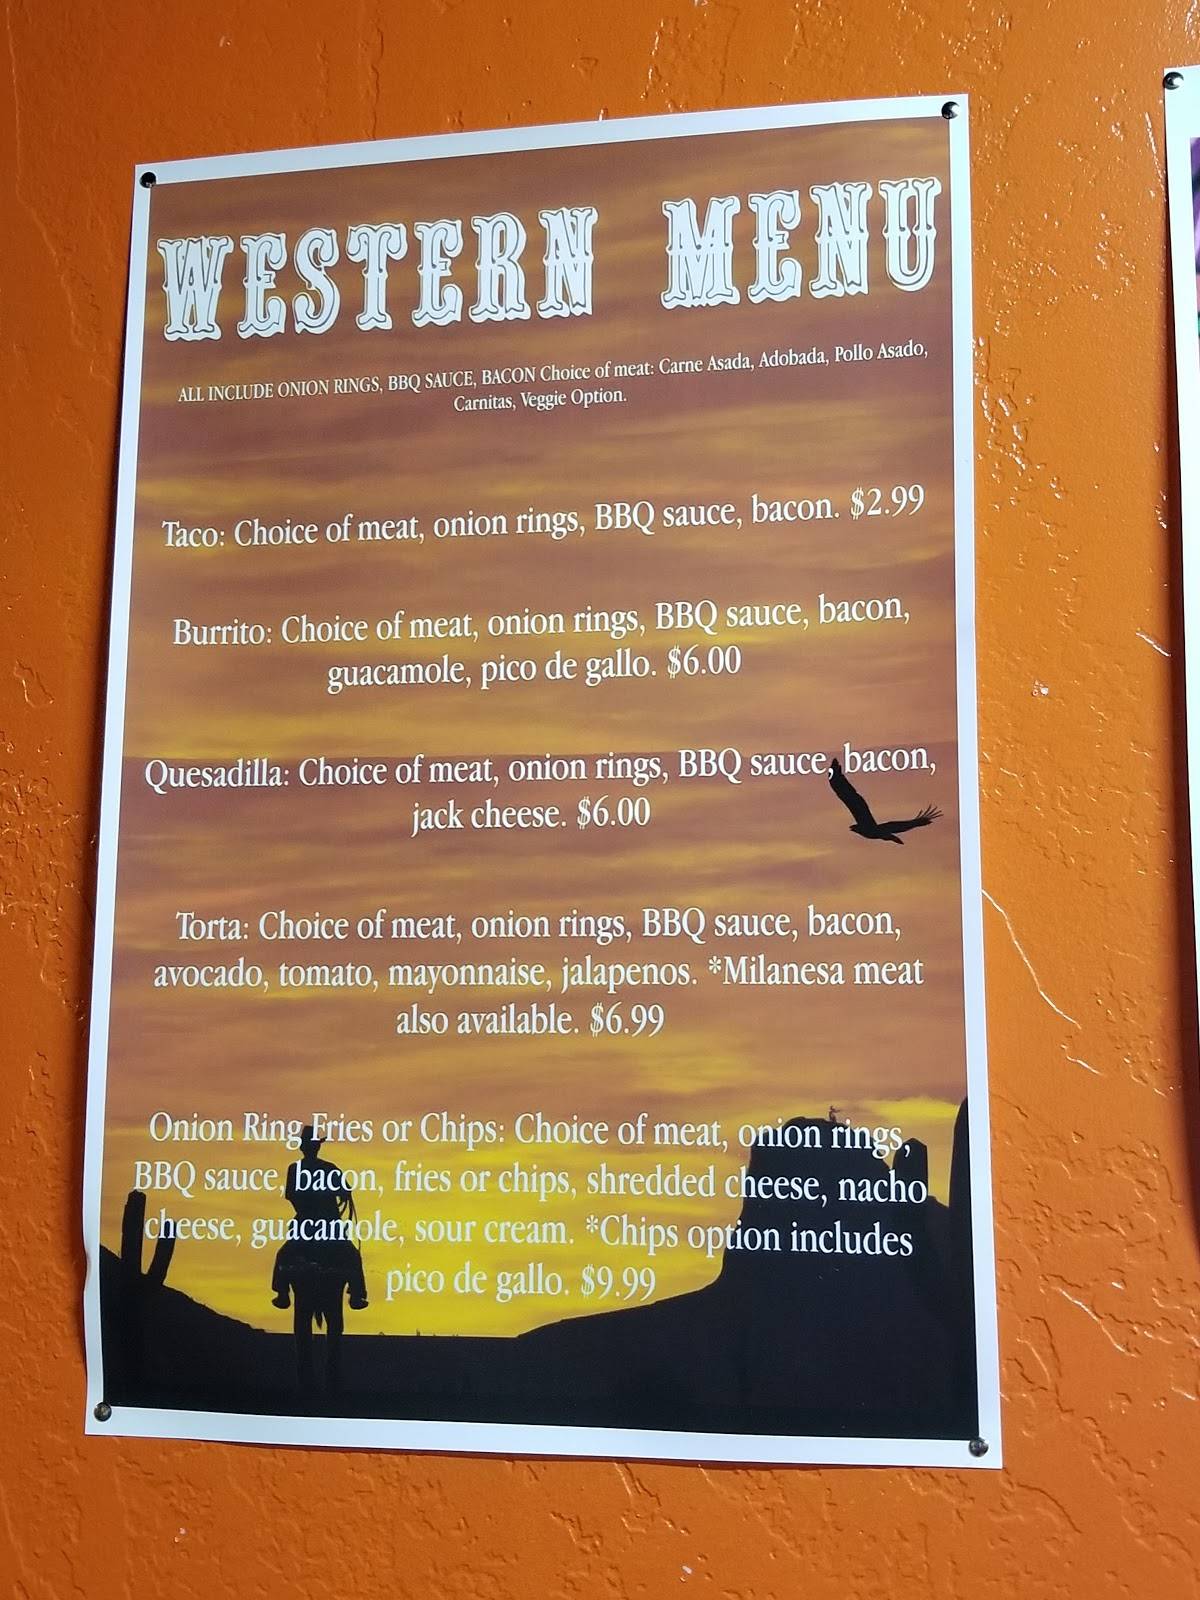 WESTERN MENU
ALL INCLUDE ONION RINGS, BBQ SAUCE, BACON Choice of meat: Carne Asada, Adobada, Pollo Asado,
Carnitas, Veggie Option.
Taco: Choice of meat, onion rings, BBQ sauce, bacon. $2.99
Burrito: Choice of meat, onion rings, BBQ sauce, bacon,
guacamole, pico de gallo. $6.00
Quesadilla: Choice of meat, onion rings, BBQ sauce, bacon,
jack cheese. $6.00
Torta: Choice of meat, onion rings, BBQ sauce, bacon,
avocado, tomato, mayonnaise, jalapenos. *Milanesa meat
also available. $6.99
Onion Ring Fries or Chips: Choice of meat, onion rings,
BBQ sauce, bacon, fries or chips, shredded cheese, nacho
cheese, guacamole, sour cream. *Chips option includes
pico de gallo. $9.99